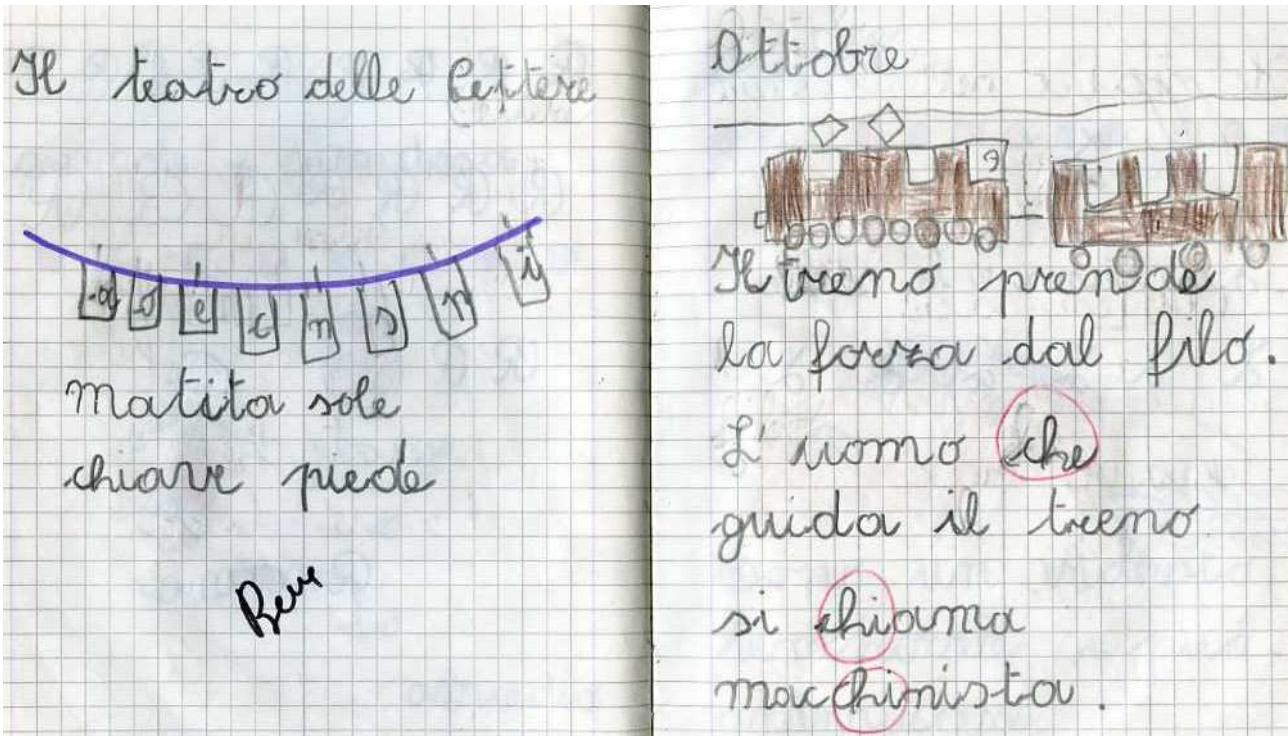 Il teatro delle lettere
a o e c n s r i
matita sole
chiave piede
Bene
Ottobre
Il treno prende
la forza dal filo.
L'uomo che
guida il treno
si chiama
macchinista.